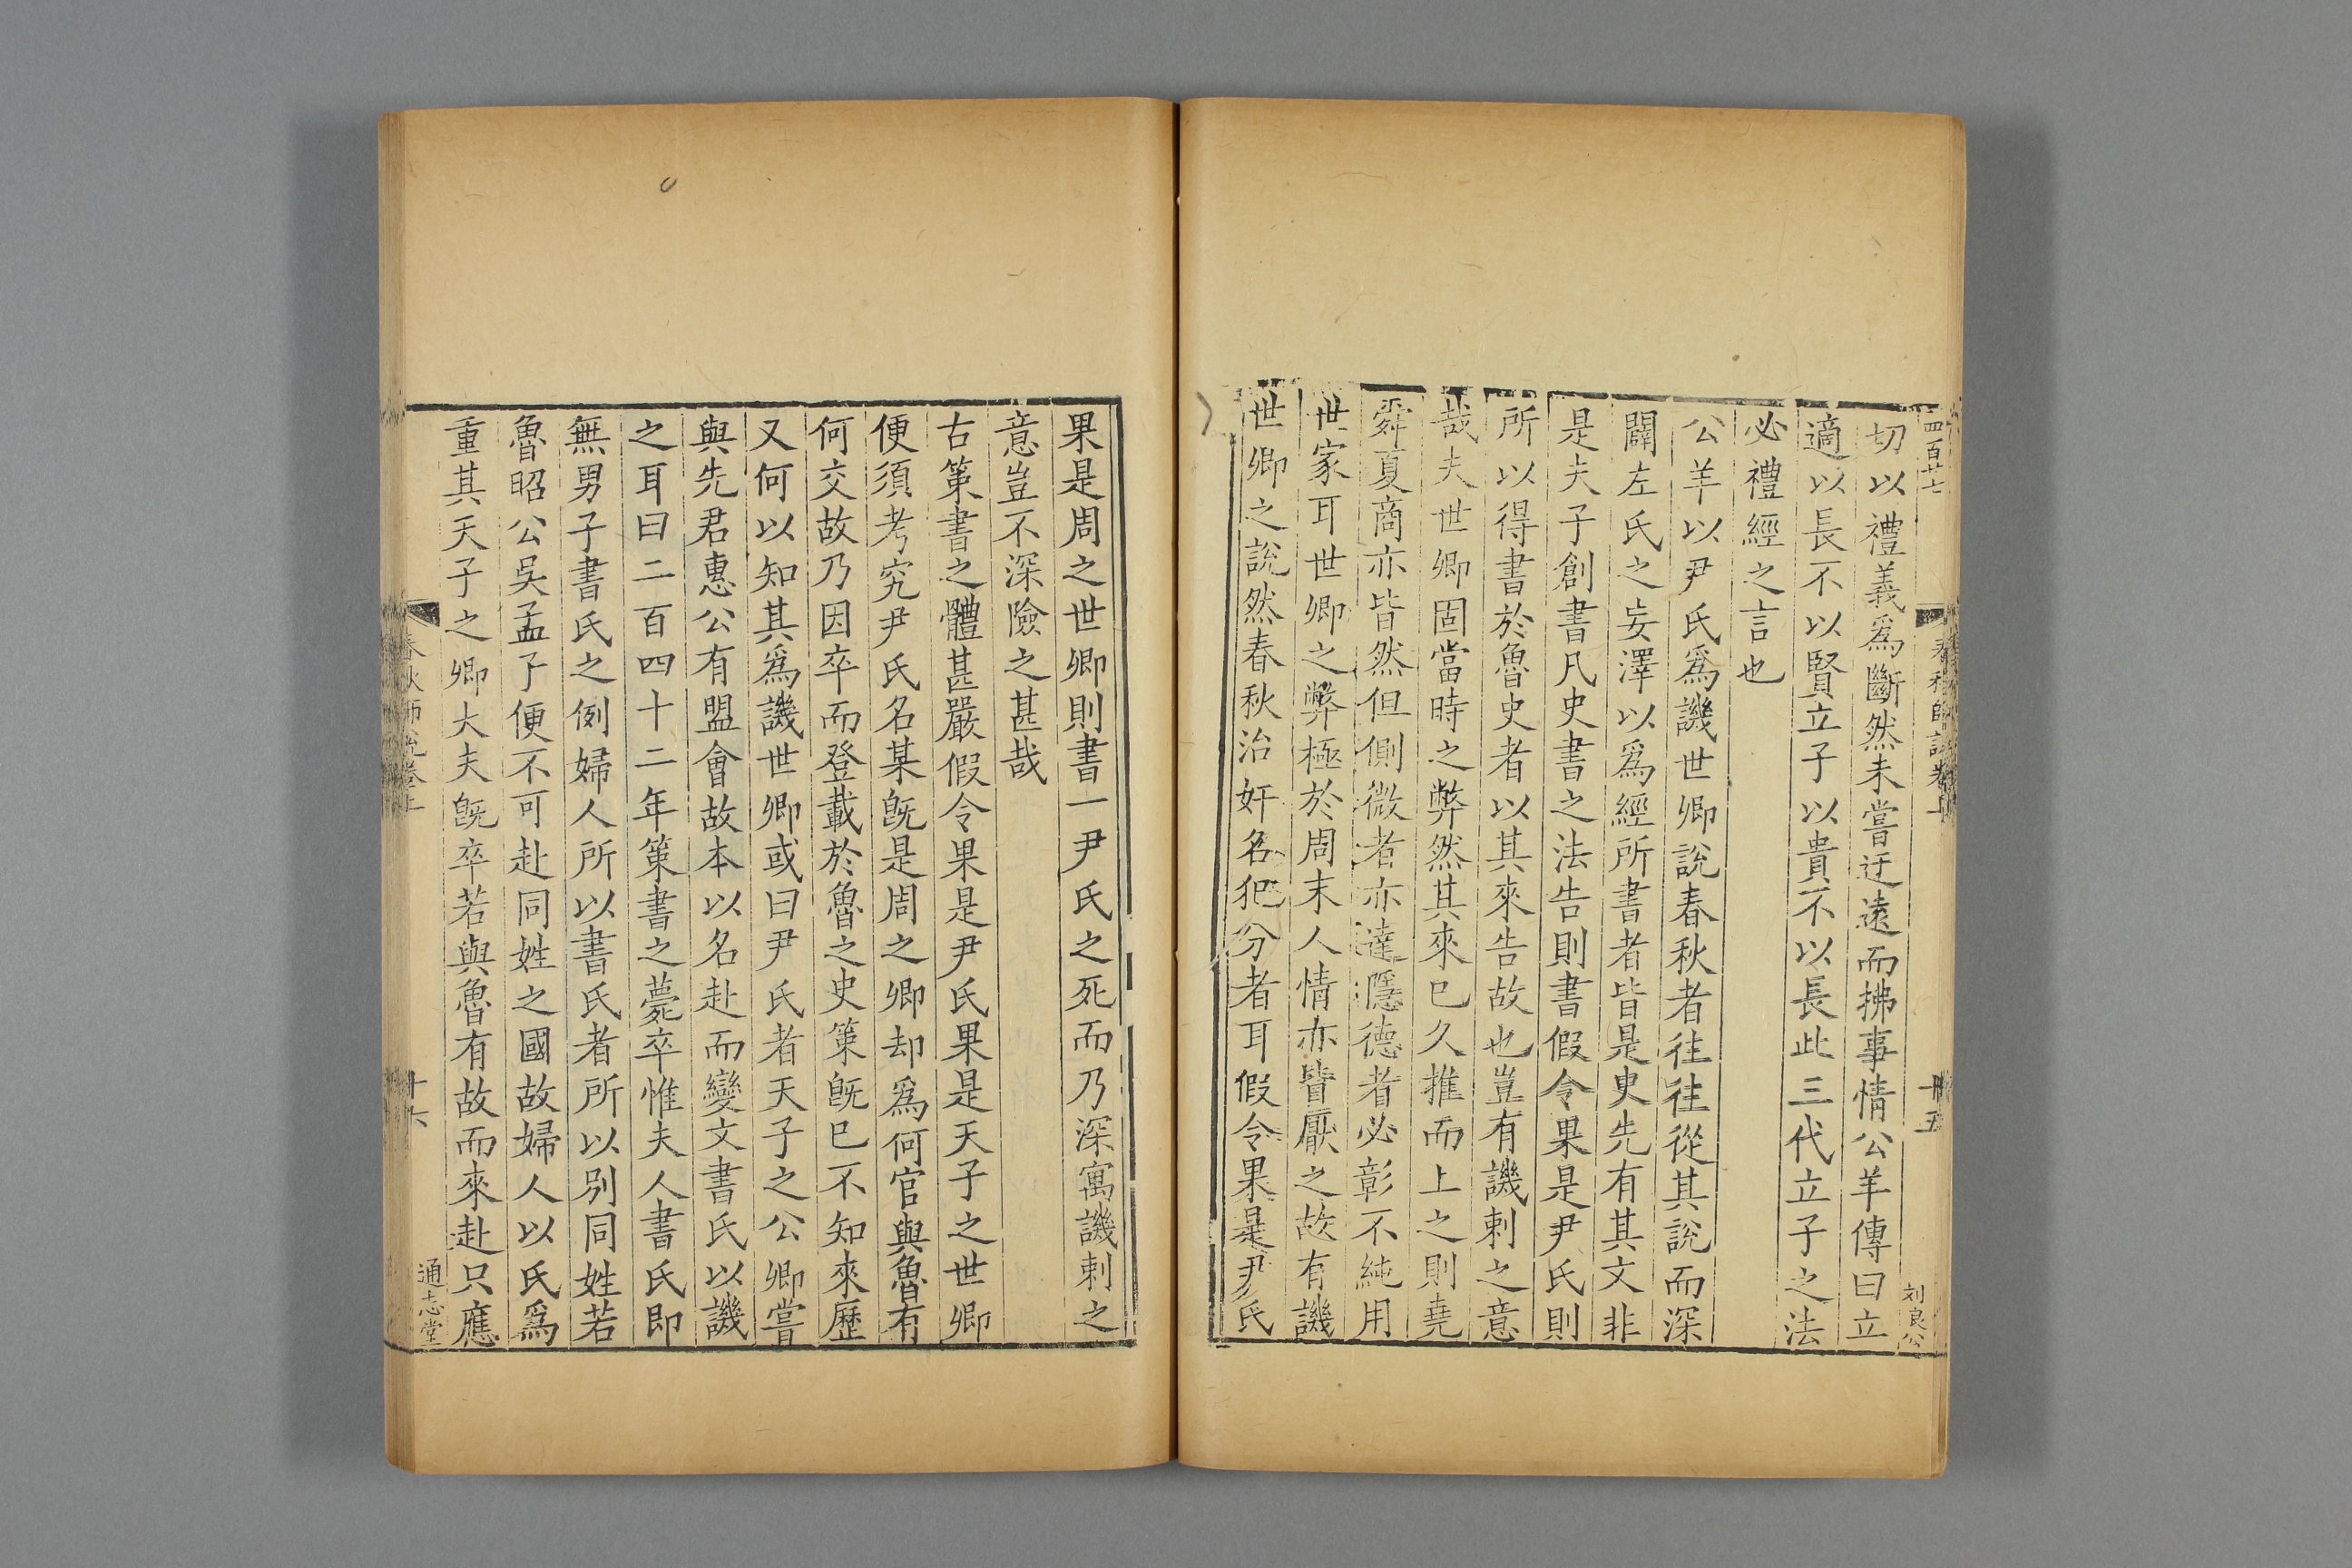 四百廿七
春秋師說卷上
十五
刘良公
切以禮義爲斷然未嘗迂遠而拂事情公羊傳曰立
適以長不以賢立子以貴不以長此三代立子之法
必禮經之言也
公羊以尹氏爲譏世卿說春秋者往往從其說而深
闢左氏之妄澤以爲經所書者皆是史先有其文非
是夫子創書凡史書之法告則書假令果是尹氏則
所以得書於魯史者以其來告故也豈有譏刺之意
哉夫世卿固當時之弊然其來已久推而上之則堯
舜夏商亦皆然但側微者亦達隱德者必彰不純用
世家耳世卿之弊極於周末人情亦皆厭之故有譏
世卿之說然春秋治奸名犯分者耳假令果是尹氏
果是周之世卿則書一尹氏之死而乃深寓譏刺之
意豈不深險之甚哉
古策書之體甚嚴假令果是尹氏果是天子之世卿
便須考究尹氏名某旣是周之卿却爲何官與魯有
何交故乃因卒而登載於魯之史策旣已不知來歷
又何以知其爲譏世卿或曰尹氏者天子之公卿嘗
與先君惠公有盟會故本以名赴而變文書氏以譏
之耳曰二百四十二年策書之薨卒惟夫人書氏即
無男子書氏之例婦人所以書氏者所以別同姓若
魯昭公吳孟子便不可赴同姓之國故婦人以氏爲
重其天子之卿大夫旣卒若與魯有故而來赴只應
春秋師說卷上
十六
通志堂